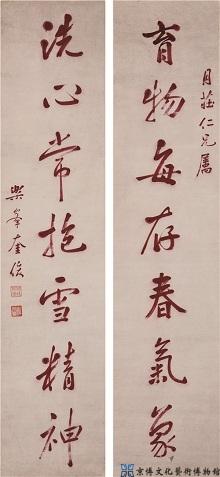 月莊仁兄屬
育物每存春氣象
洗心常抱雪精神
樂峯奎俊
京博文化藝術博物館